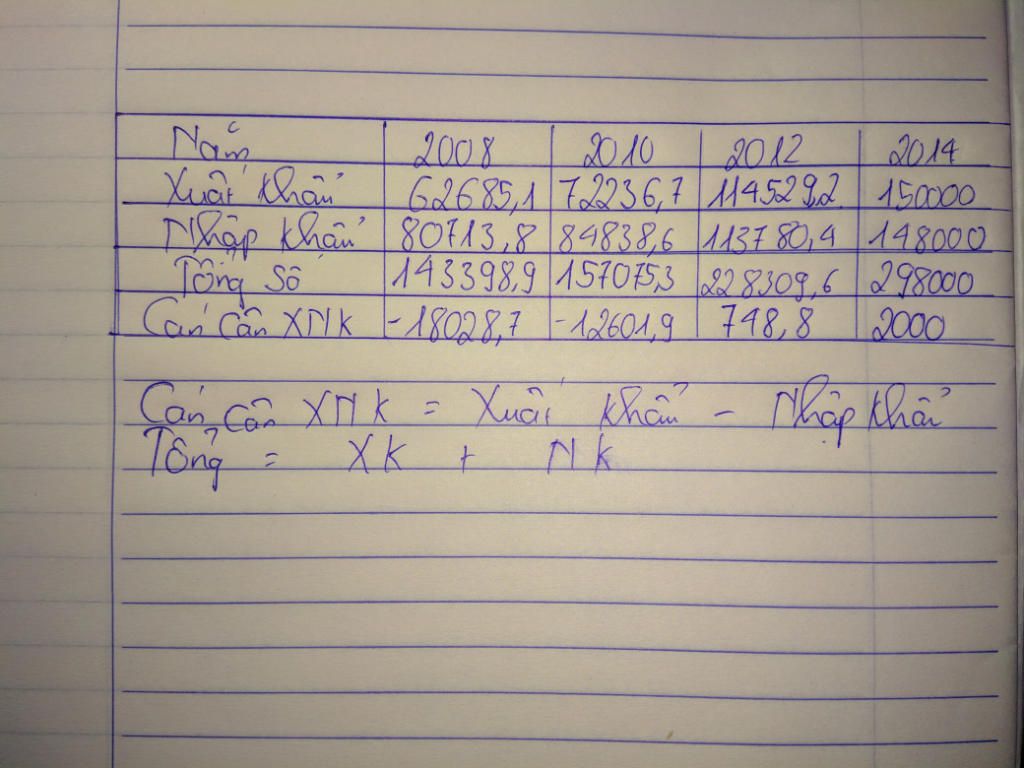 Năm 2008 2010 2012 2014
Xuất khẩu 62685,1 72236,7 114529,2 150000
Nhập khẩu 80713,8 84838,6 113780,4 148000
Tổng số 143398,9 157075,3 228309,6 298000
Cán cân XNK -18028,7 -12601,9 748,8 2000
Cán cân XNK = Xuất khẩu - Nhập khẩu
Tổng = XK + NK